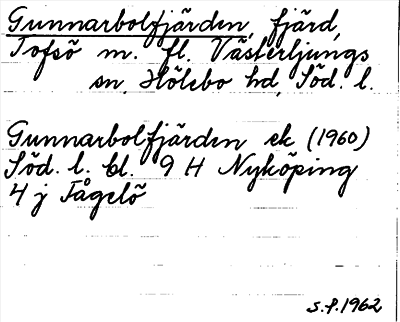 Gunnarbolfjärden, fjärd,
Tofsö m. fl. Västerljungs
sn, Hölebo hd, Söd. l.
Gunnarbolfjärden ek (1960)
Söd. l. bl. 9 H Nyköping
4 j Fågelö
S.P. 1962